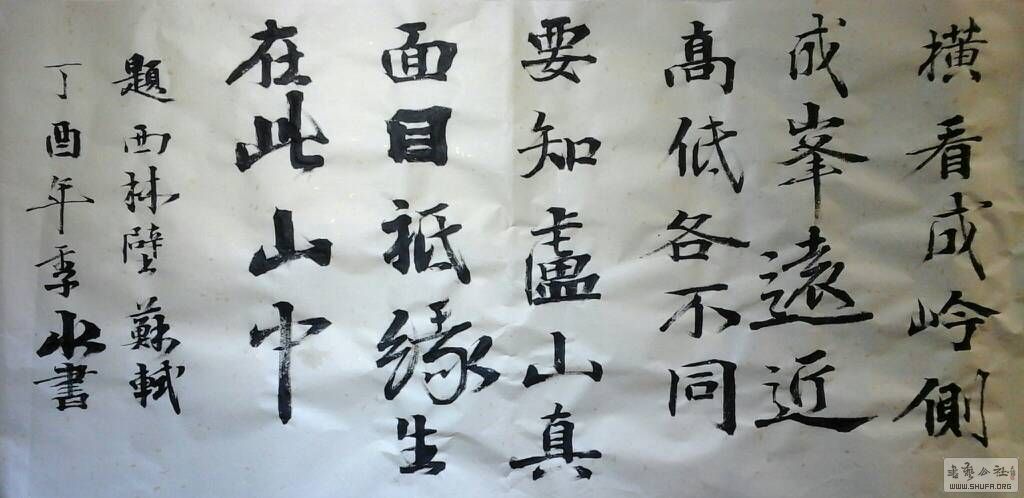 横看成岭側
成峯遠近
髙低各不同
要知盧山真
面目祇緣生
在此山中
題西林壁蘇軾
丁酉年季水書
书艺公社
WWW.SHUFA.ORG